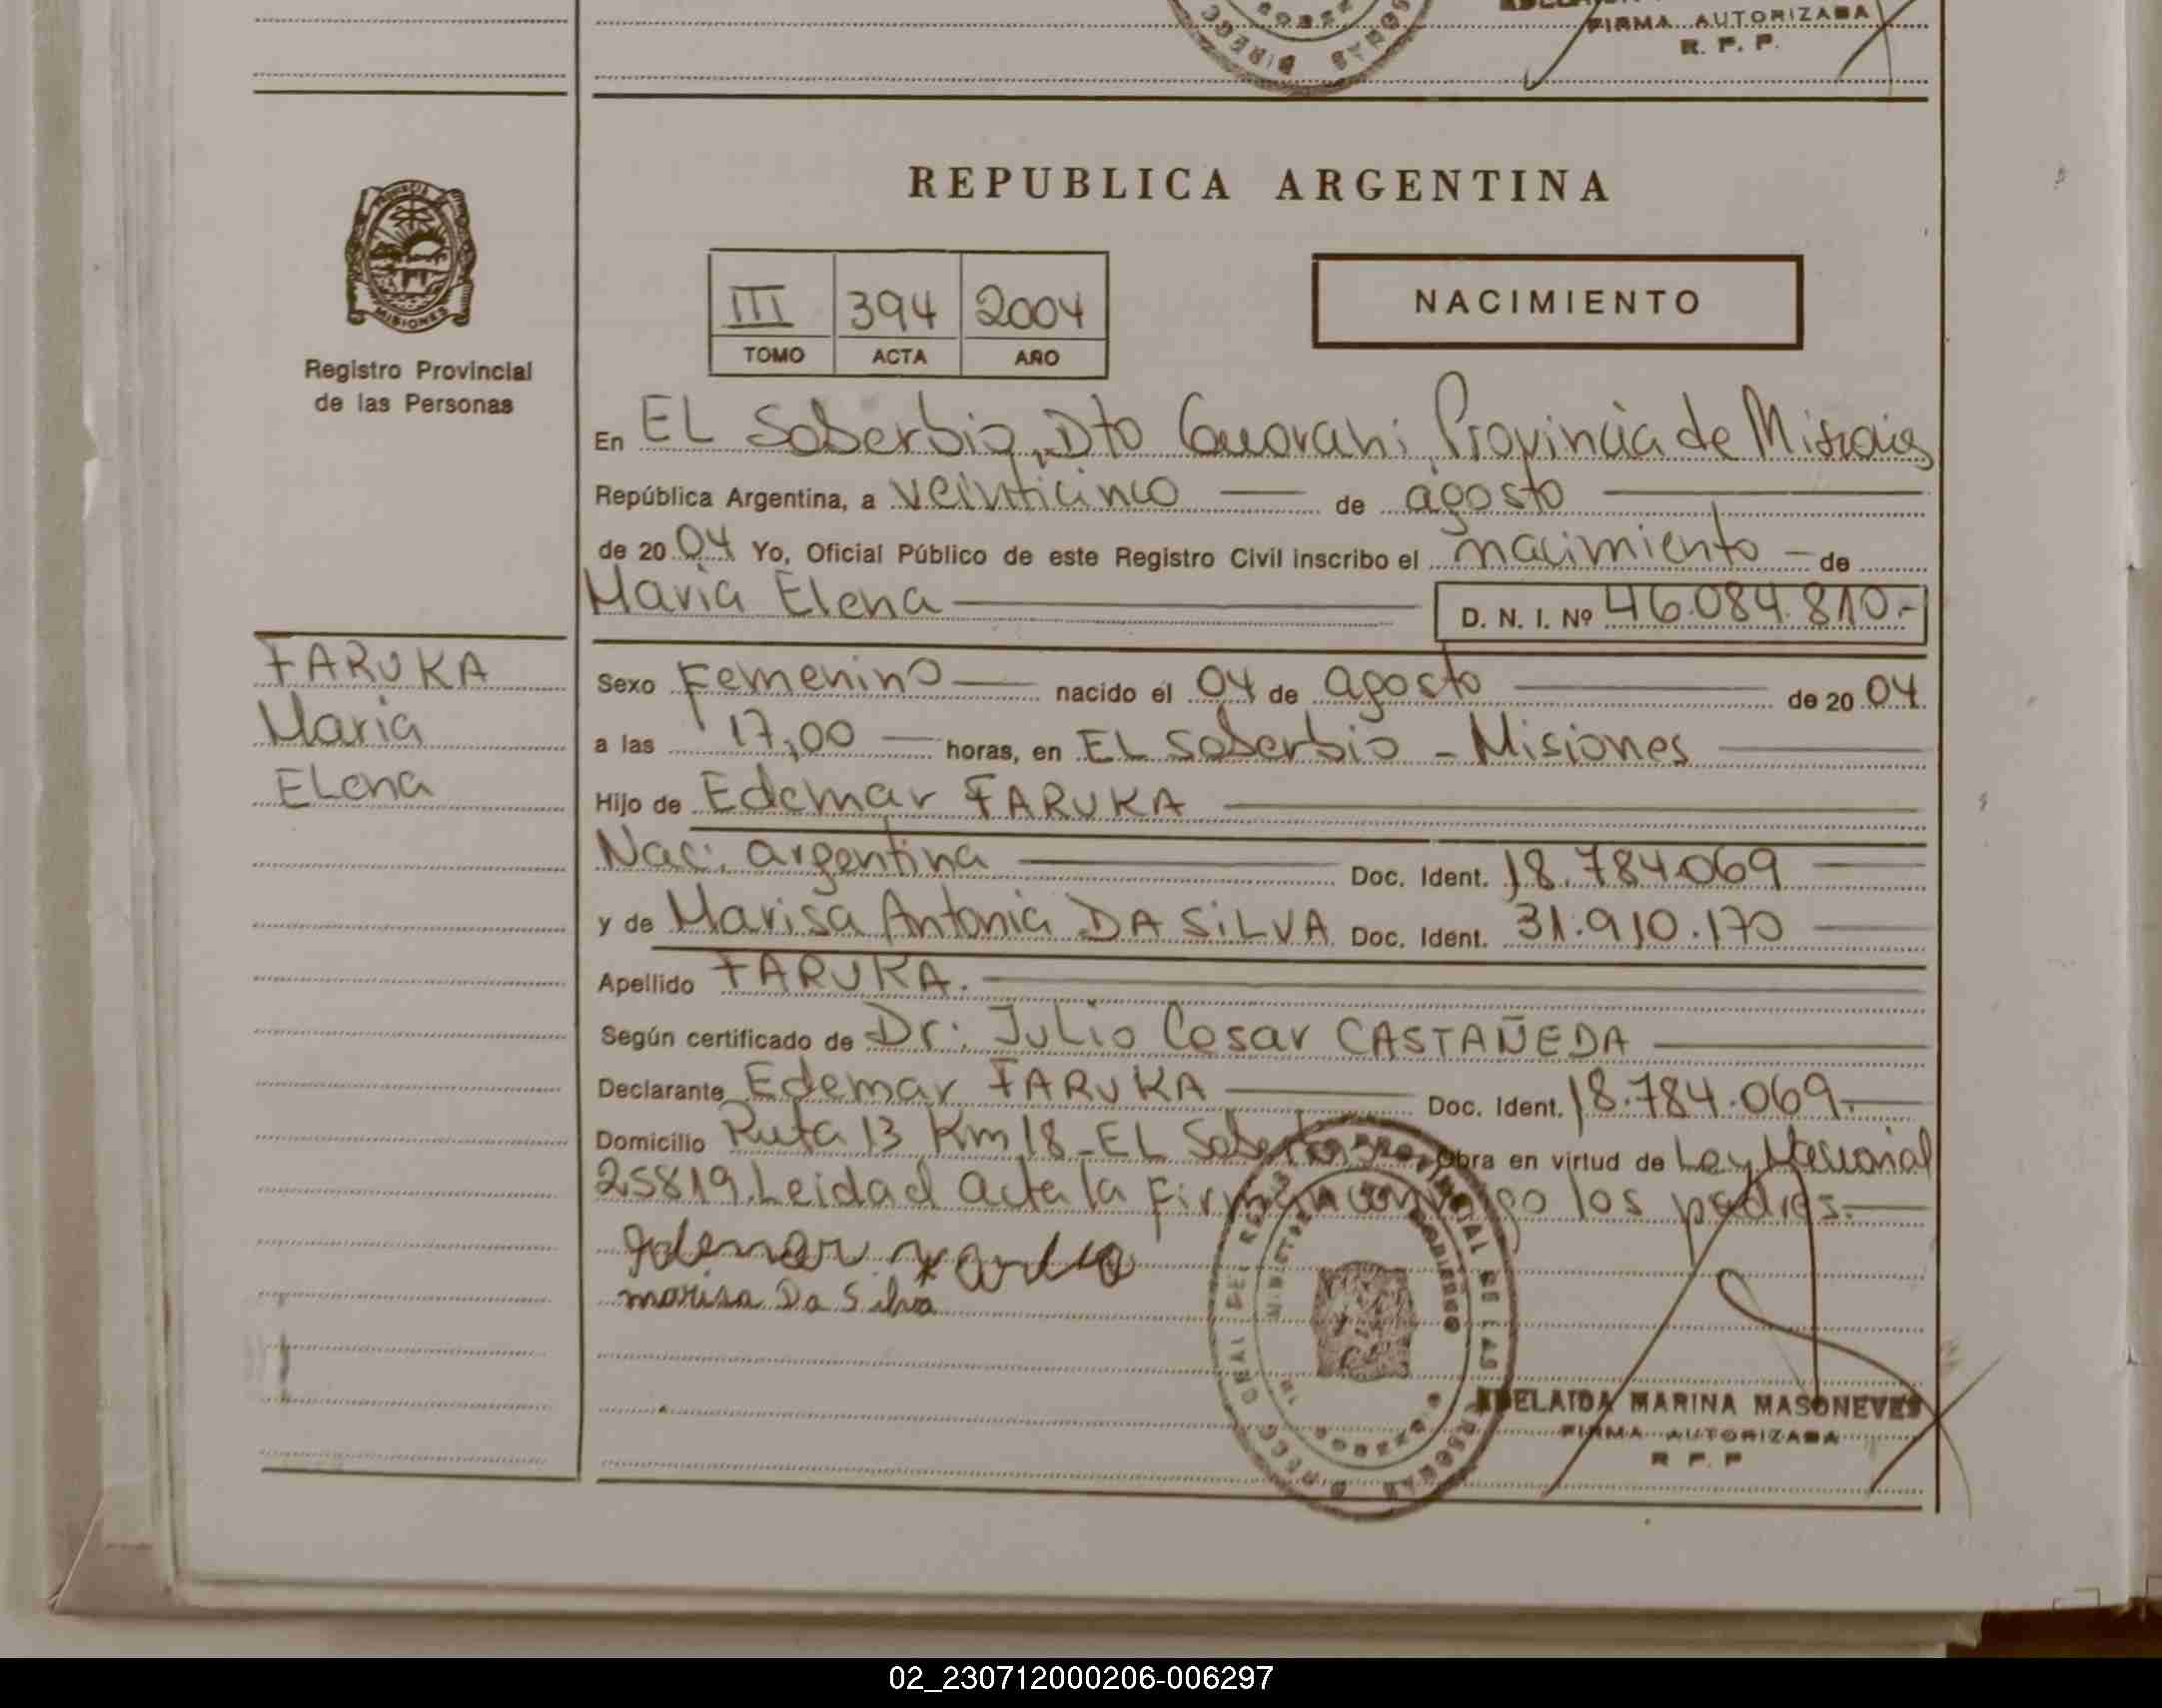 FIRMA AUTORIZADA
R. P. P.
REPUBLICA ARGENTINA
PROVINCIA
MISIONES
Registro Provincial
de las Personas
III 394 2004
TOMO ACTA AÑO
NACIMIENTO
En EL Soberbio, Dto Guarani, Provincia de Misiones
República Argentina, a veinticinco de agosto
de 2004 Yo, Oficial Público de este Registro Civil inscribo el nacimiento de
Maria Elena D. N. I. Nº 46.084.810.-
FARUKA
Maria
Elena
Sexo Femenino nacido el 04 de agosto de 2004
a las 17,00 horas, en EL Soberbio - Misiones
Hijo de Edemar FARUKA
Nac: argentina Doc. Ident. 18.784.069
y de Marisa Antonia DA SiLVA Doc. Ident. 31.910.170
Apellido FARUKA.
Según certificado de Dr: Julio Cesar CASTAÑEDA
Declarante Edemar FARUKA Doc. Ident. 18.784.069.
Domicilio Ruta 13 Km 18 - EL Soberbio Obra en virtud de Ley Nacional
25819. Leidad acta la firman conmigo los padres.
Edemar Faruka
marisa Da Silva
ADELAIDA MARINA MASONEVES
FIRMA AUTORIZADA
R P. P
02_230712000206-006297